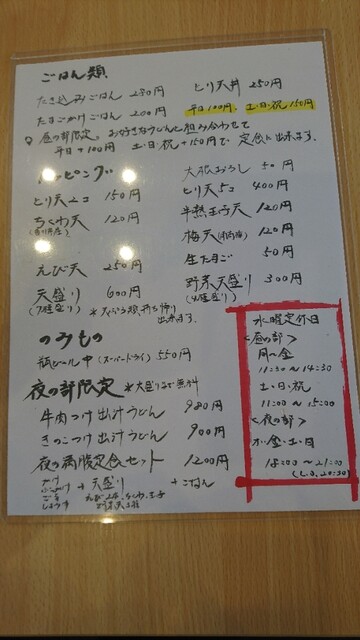 ごはん類
たき込みごはん 250円
とり天丼 250円
たまごかけごはん 200円
平日100円、土・日・祝150円
昼の部限定。お好きなうどんと組み合わせて
平日+100円 土・日・祝+150円で 定食に出来ます。
トッピング
大根おろし 50円
とり天2コ 150円
とり天5コ 400円
ちくわ天 120円
半熟玉子天 120円
梅天 120円
えび天 250円
生たまご 50円
天盛り 600円
(7種盛り)
野菜天盛り 300円
(4種盛り)
出来ます。
のみもの
瓶ビール中 (スーパードライ) 550円
夜の部限定 *大盛りまで無料
牛肉つけ出汁うどん 980円
きのこつけ出汁うどん 900円
夜の満腹定食セット 1200円
+ 天盛り + ごはん
水曜定休日
<昼の部>
月〜金
11:30〜14:30
土・日・祝
11:00〜15:00
<夜の部>
木・金・土・日
18:00〜21:00
(L.O. 20:30)